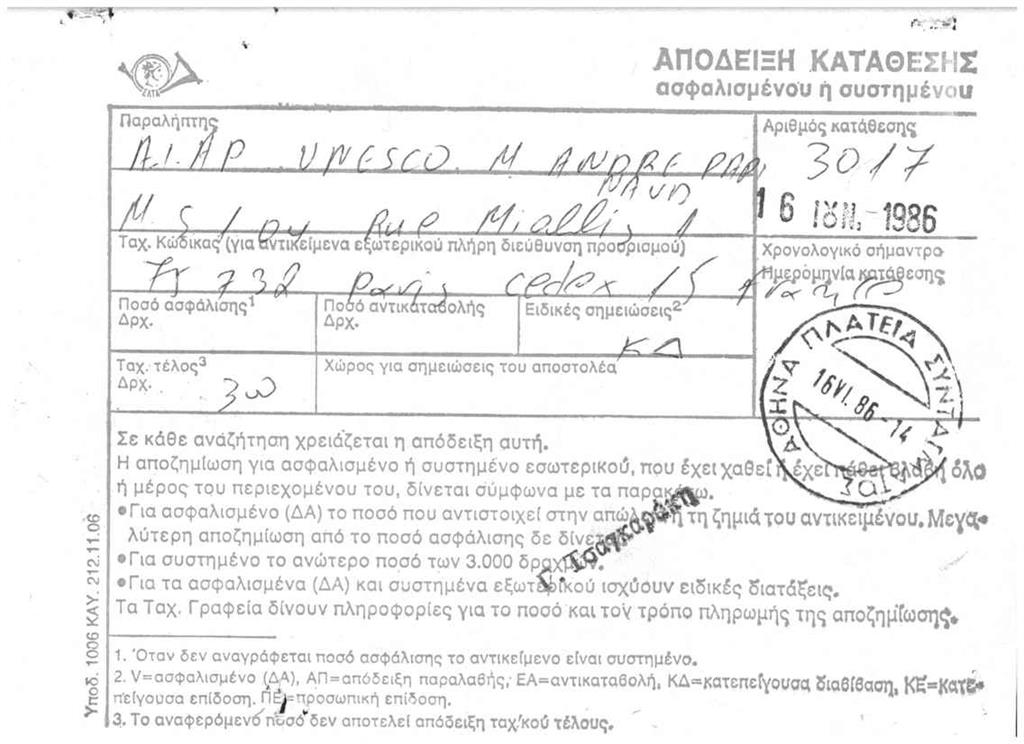 ΕΛΤΑ
ΑΠΟΔΕΙΞΗ ΚΑΤΑΘΕΣΗΣ
ασφαλισμένου ή συστημένου
Παραλήπτης
A.I.A.P. UNESCO. M ANDRE PAPI
NAUD
M. S / Rue Miollis 1
Ταχ. Κώδικας (για αντικείμενα εξωτερικού πλήρη διεύθυνση προορισμού)
75 732 Paris cedex 15 France
Αριθμός κατάθεσης
3017
16 ΙΟΥΝ. 1986
Χρονολογικό σήμαντρο
Ημερομηνία κατάθεσης
Ποσό ασφάλισης1
Δρχ.
Ποσό αντικαταβολής
Δρχ.
Ειδικές σημειώσεις2
ΚΔ
Ταχ. τέλος3
Δρχ.
Χώρος για σημειώσεις του αποστολέα
ΑΘΗΝΑ ΠΛΑΤΕΙΑ ΣΥΝΤΑΓΜΑΤΟΣ
16 VI. 86-14
Σε κάθε αναζήτηση χρειάζεται η απόδειξη αυτή.
Η αποζημίωση για ασφαλισμένο ή συστημένο εσωτερικού, που έχει χαθεί ή έχει πάθει βλάβη όλο
ή μέρος του περιεχομένου του, δίνεται σύμφωνα με τα παρακάτω.
•Για ασφαλισμένο (ΔΑ) το ποσό που αντιστοιχεί στην απώλεια ή τη ζημιά του αντικειμένου. Μεγα-
λύτερη αποζημίωση από το ποσό ασφάλισης δε δίνεται.
•Για συστημένο το ανώτερο ποσό των 3.000 δραχμών.
•Για τα ασφαλισμένα (ΔΑ) και συστημένα εξωτερικού ισχύουν ειδικές διατάξεις.
Τα Ταχ. Γραφεία δίνουν πληροφορίες για το ποσό και τον τρόπο πληρωμής της αποζημίωσης.
Γ. Τσαγκαράκη
1. Όταν δεν αναγράφεται ποσό ασφάλισης το αντικείμενο είναι συστημένο.
2. V=ασφαλισμένο (ΔΑ), ΑΠ=απόδειξη παραλαβής, ΕΑ=αντικαταβολή, ΚΔ=κατεπείγουσα διαβίβαση, ΚΕ=κατε-
πείγουσα επίδοση. ΠΕ=προσωπική επίδοση.
3. Το αναφερόμενο ποσό δεν αποτελεί απόδειξη ταχ/κού τέλους.
Υποδ. 1006 ΚΑΥ. 212.11.06